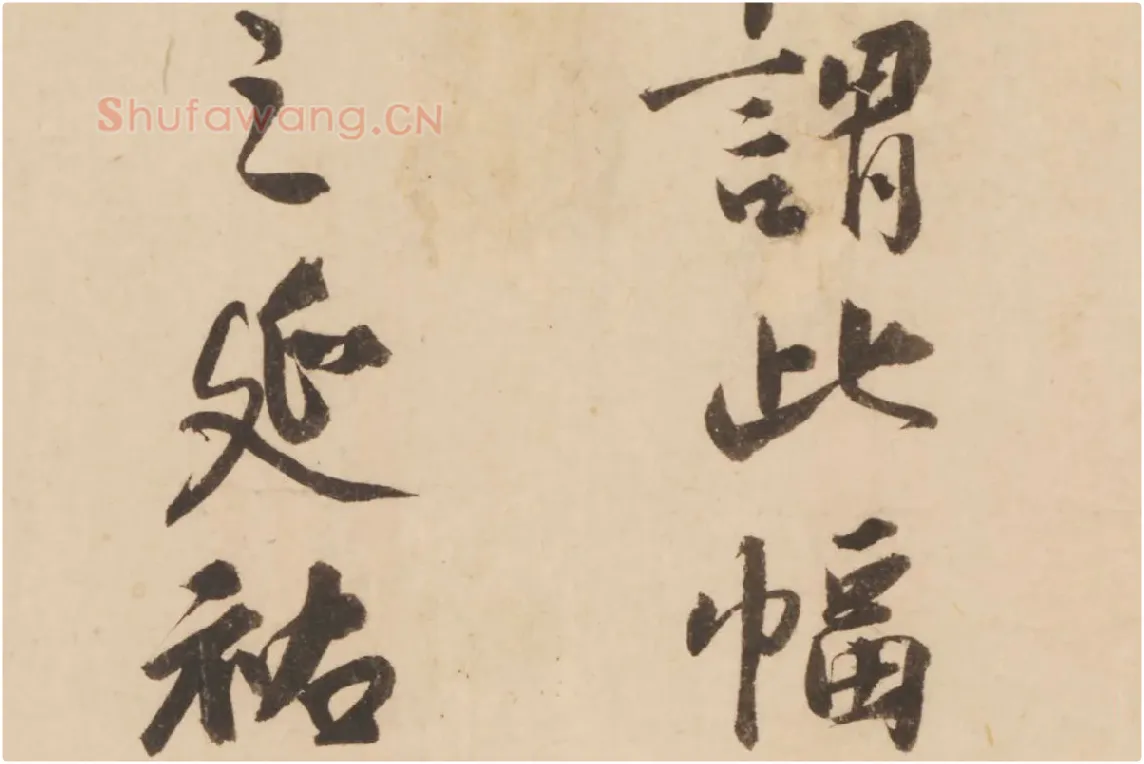 謂此幅
之延祐
Shufawang.CN